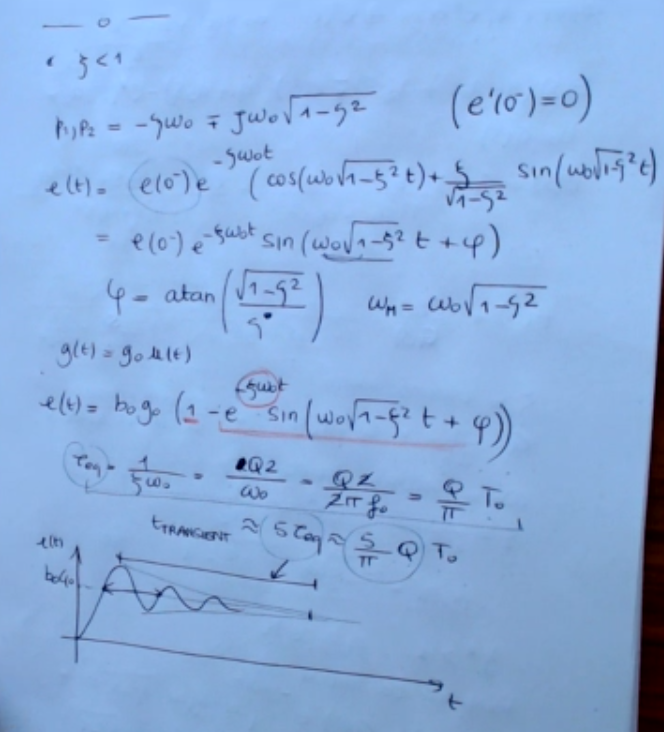 — o —
• ξ < 1
p₁, p₂ = -ξω₀ ∓ jω₀√(1-ξ²) (e'(0⁻)=0)
e(t) = e(0⁻) e^(-ξω₀t) (cos(ω₀√(1-ξ²) t) + ξ/√(1-ξ²) sin(ω₀√(1-ξ²) t)
= e(0⁻) e^(-ξω₀t) sin(ω₀√(1-ξ²) t + φ)
φ = atan(√(1-ξ²)/ξ) ω_M = ω₀√(1-ξ²)
g(t) = g₀ u(t)
e(t) = b₀g₀ (1 - e^(-ξω₀t) sin(ω₀√(1-ξ²) t + φ))
τeq = 1/(ξω₀) = Q2/ω₀ = Q2/(2π f₀) = Q/π T₀
tTRANSIENT ≈ 5 τeq ≈ 5/π Q T₀
e(t)
b₀g₀
t